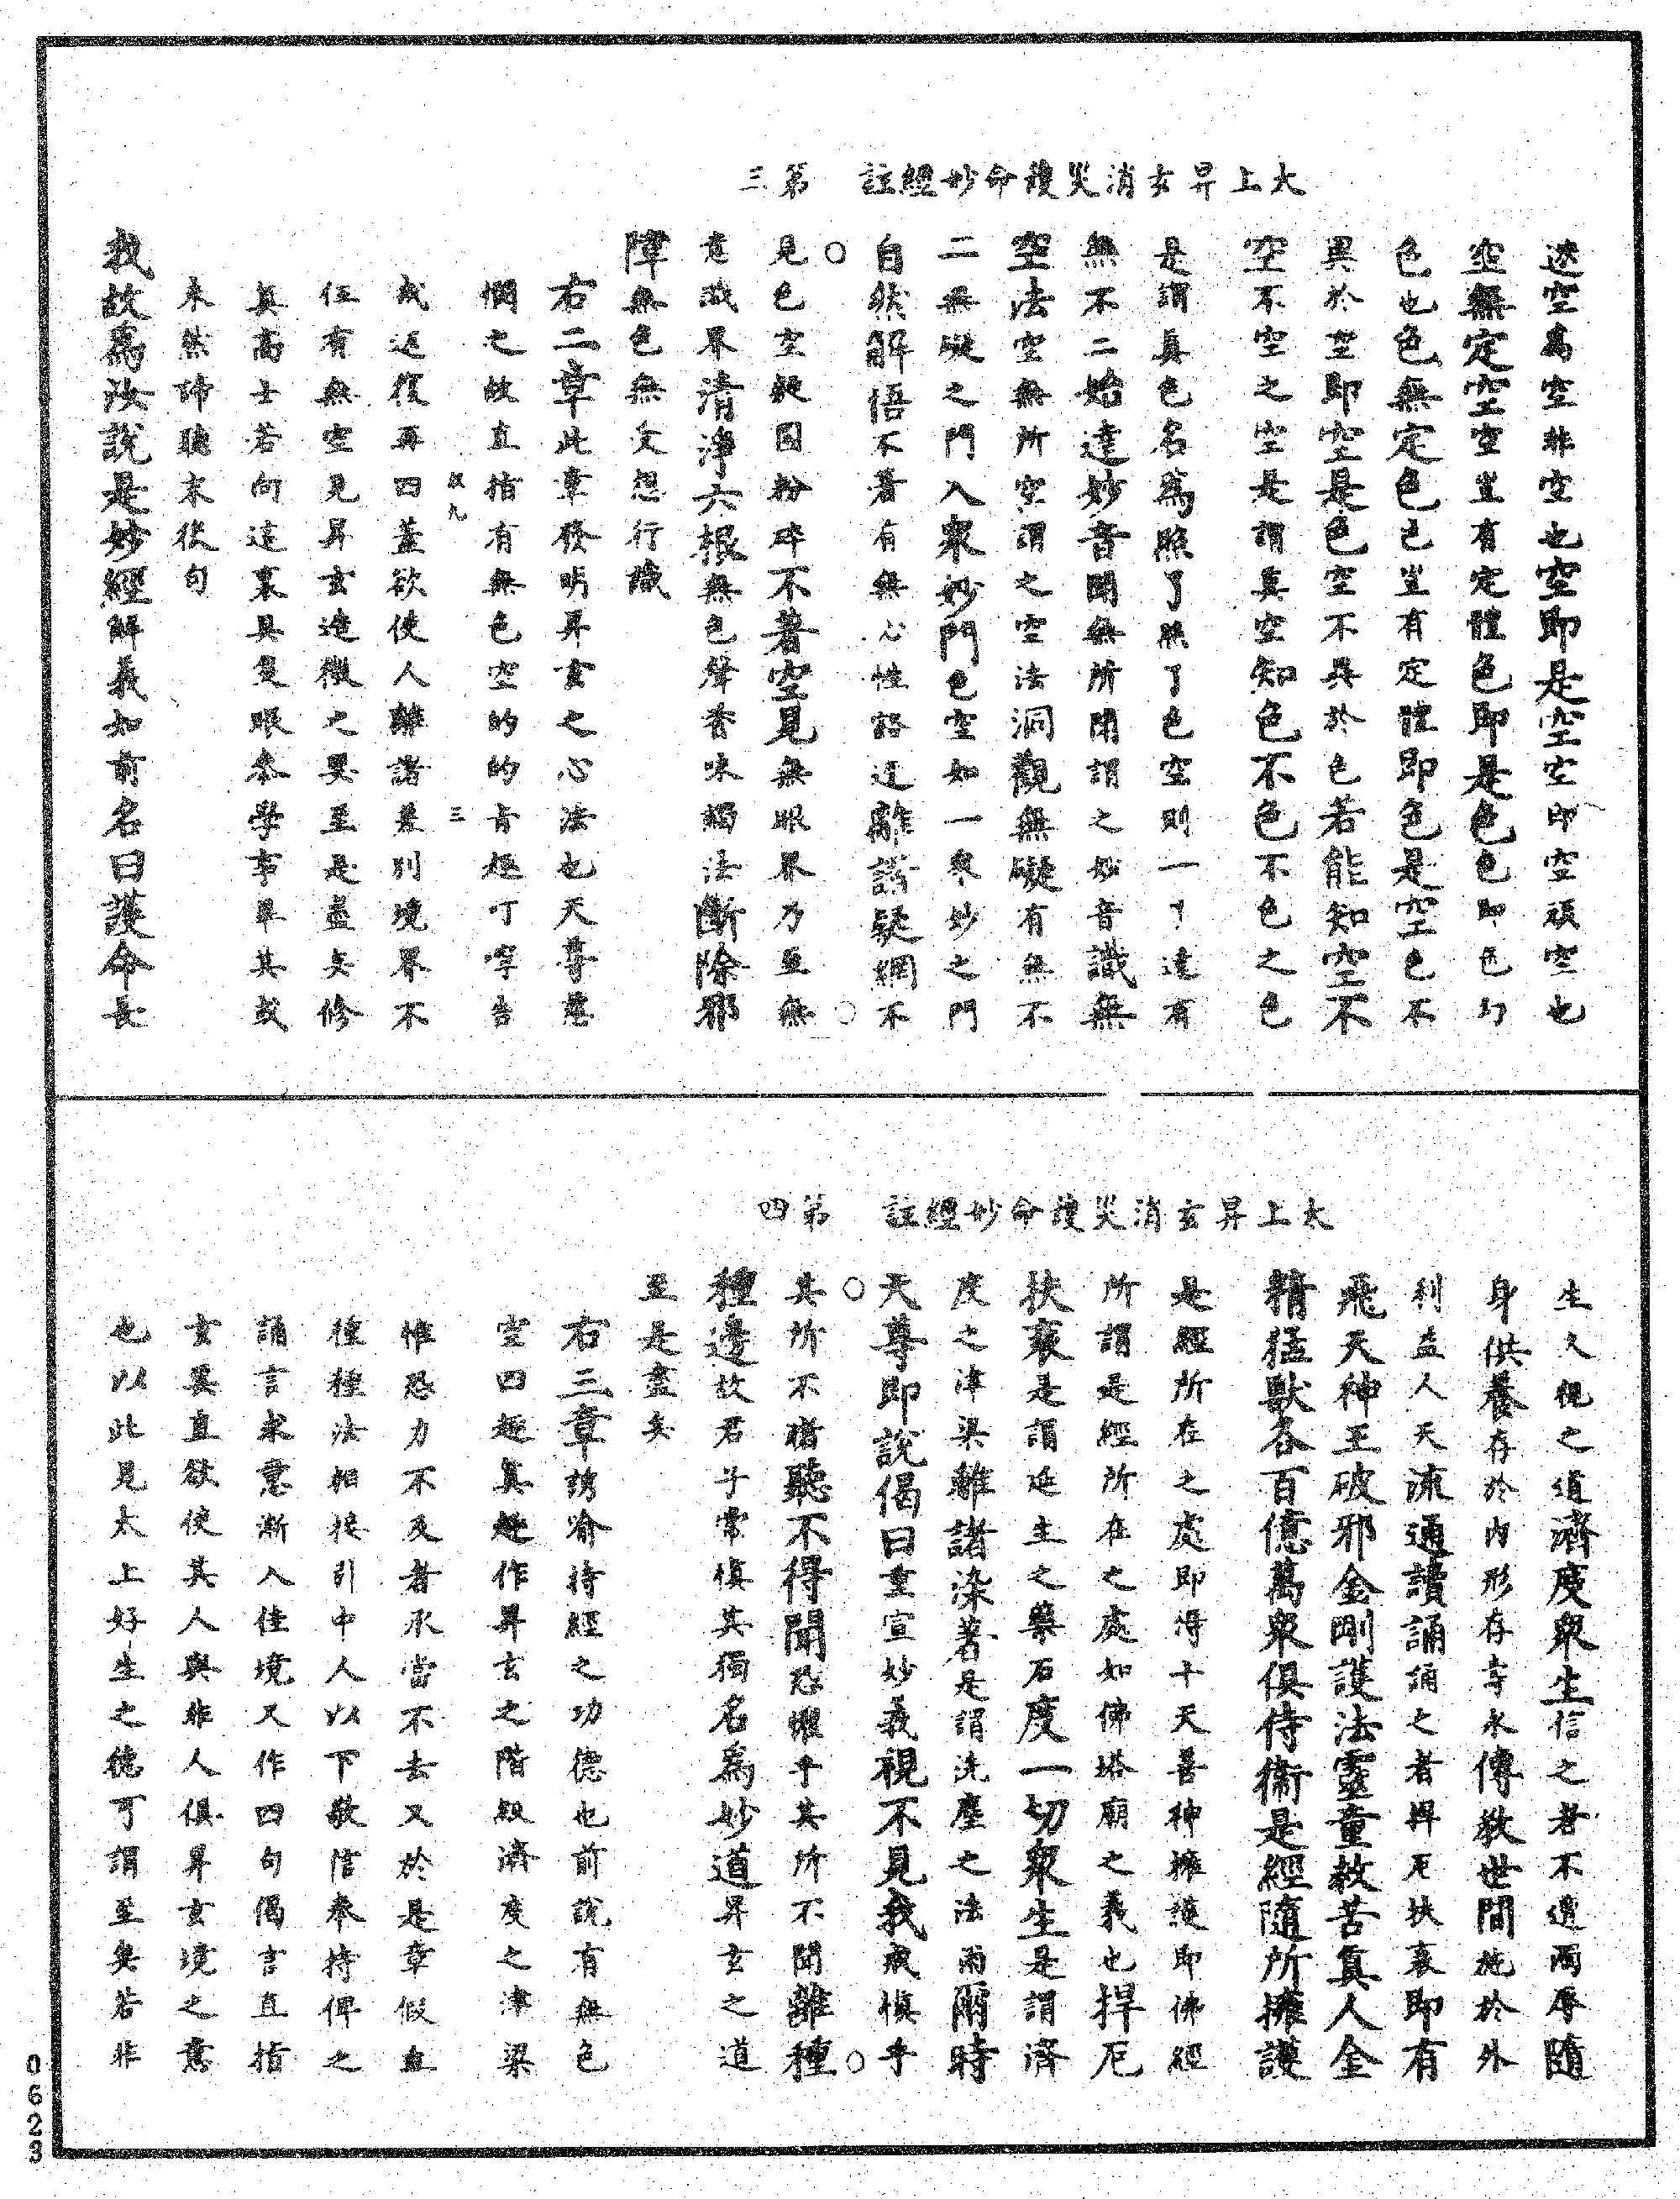 太上昇玄消災護命妙經註　第三
迷空爲空非空也空即是空空即空頑空也
空無定空空豈有定體色即是色色即色幻
色也色無定色色豈有定體即色是空色不
異於空即空是色空不異於色若能知空不
空不空之空是謂眞空知色不色不色之色
是謂眞色名爲照了照了色空則一了達有
無不二始達妙音聞無所聞謂之妙音識無
空法空無所空謂之空法洞觀無礙有無不
二無礙之門入衆妙門色空如一衆妙之門
自然解悟不著有無心性豁達離諸疑網不
見色空疑團粉碎不著空見無眼界乃至無
意識界清淨六根無色聲香味觸法斷除邪
障無色無受想行識
右二章此章發明昇玄之心法也天尊慈
憫之故直指有無色空的的旨趣叮嚀告
三
戒返復再四蓋欲使人離諸差別境界不
住有無空見昇玄達微之異至是盡矣修
眞高士若向這裏具隻眼參學事畢其或
未然諦聽末後句
我故爲汝說是妙經解義如前名曰護命長
太上昇玄消災護命妙經註　第四
生久視之道濟度衆生信之者不遭囿辱隨
身供養存於內形存寺永傳教世間施於外
利益人天流通讀誦誦之者捍厄扶衰即有
飛天神王破邪金剛護法靈童救苦眞人金
精猛獸各百億萬衆俱侍衞是經隨所擁護
是經所在之處即得十天善神擁護即佛經
所謂是經所在之處如佛塔廟之義也捍厄
扶衰是謂延生之藥石度一切衆生是謂濟
度之津梁離諸染著是謂洗塵之法雨爾時
天尊即說偈曰重宣妙義視不見我戒慎乎
其所不睹聽不得聞恐懼乎其所不聞離種
種邊故君子常慎其獨名爲妙道昇玄之道
至是盡矣
右三章誘喻持經之功德也前說有無色
空四趣眞趣作昇玄之階級濟度之津梁
惟恐力不及者承當不去又於是章假血
種種法相接引中人以下敬信奉持俾之
誦言求意漸入佳境又作四句偈言直指
玄異直欲使其人與非人俱昇玄境之意
也以此見太上好生之德可謂至矣若非
0623